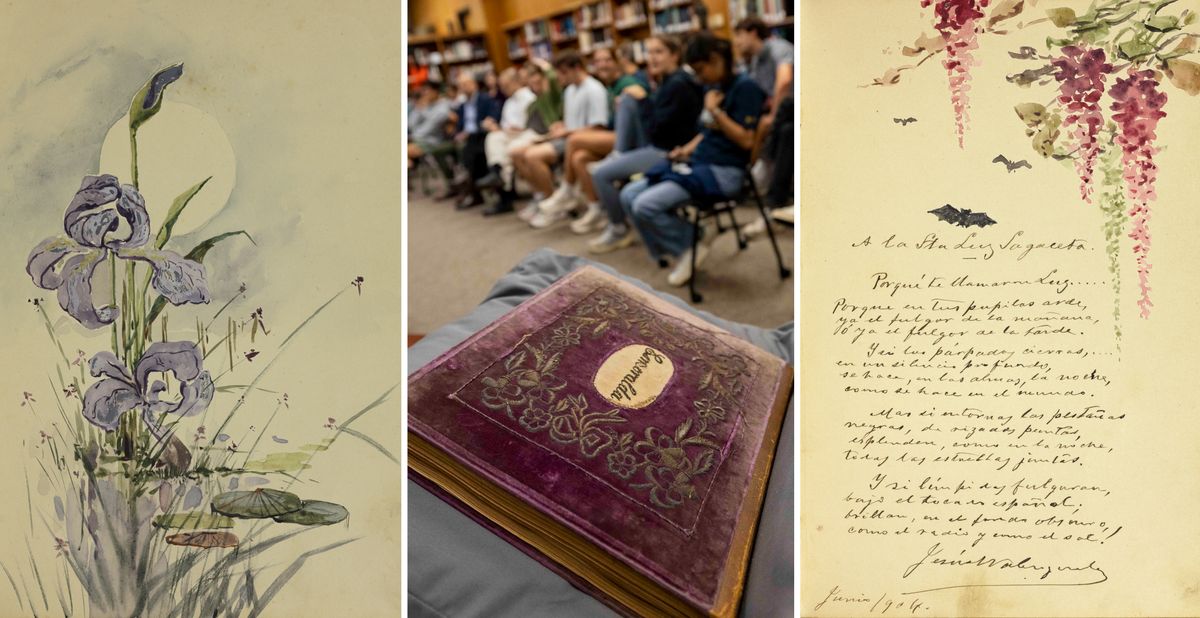 Esmeralda
A la Sta Luz Sagaceta.
Porqué te llamaron Luz.....
Porque en tus pupilas arde,
ya el fulgor de la mañana,
ó ya el fulgor de la tarde.
Y si los párpados cierras,....
en un silencio profundo,
se hace, en las almas, la noche,
como se hace en el mundo.
Mas si entornas las pestañas
negras, de rizadas puntas,
esplenden, como en la noche,
todas las estrellas juntas.
Y si limpidos fulguran,
bajo el tocado español.
brillan, en el fondo obscuro,
como el radio y como el sol!
Jesús Valenzuela
Junio/904.